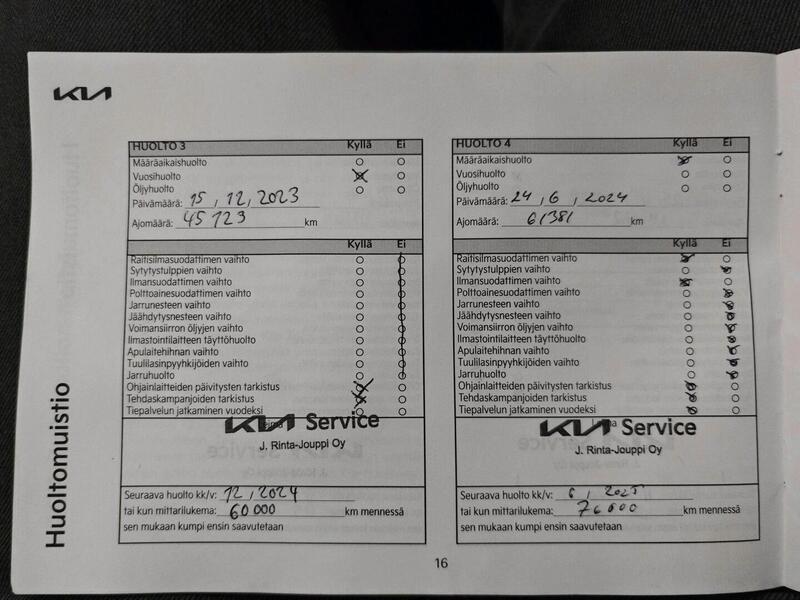 KIA
Huoltomuistio
HUOLTO 3 Kyllä Ei
Määräaikaishuolto
Vuosihuolto
Öljyhuolto
Päivämäärä: 15, 12, 2023
Ajomäärä: 45 123 km
Kyllä Ei
Raitisilmasuodattimen vaihto
Sytytystulppien vaihto
Ilmansuodattimen vaihto
Polttoainesuodattimen vaihto
Jarrunesteen vaihto
Jäähdytysnesteen vaihto
Voimansiirron öljyjen vaihto
Ilmastointilaitteen täyttöhuolto
Apulaitehihnan vaihto
Tuulilasinpyyhkijöiden vaihto
Jarruhuolto
Ohjainlaitteiden päivitysten tarkistus
Tehdaskampanjoiden tarkistus
Tiepalvelun jatkaminen vuodeksi
KIA Service
J. Rinta-Jouppi Oy
Seuraava huolto kk/v: 12, 2024
tai kun mittarilukema: 60 000 km mennessä
sen mukaan kumpi ensin saavutetaan
HUOLTO 4 Kyllä Ei
Määräaikaishuolto
Vuosihuolto
Öljyhuolto
Päivämäärä: 24, 6, 2024
Ajomäärä: 61381 km
Kyllä Ei
Raitisilmasuodattimen vaihto
Sytytystulppien vaihto
Ilmansuodattimen vaihto
Polttoainesuodattimen vaihto
Jarrunesteen vaihto
Jäähdytysnesteen vaihto
Voimansiirron öljyjen vaihto
Ilmastointilaitteen täyttöhuolto
Apulaitehihnan vaihto
Tuulilasinpyyhkijöiden vaihto
Jarruhuolto
Ohjainlaitteiden päivitysten tarkistus
Tehdaskampanjoiden tarkistus
Tiepalvelun jatkaminen vuodeksi
KIA Service
J. Rinta-Jouppi Oy
Seuraava huolto kk/v: 6, 2025
tai kun mittarilukema: 76000 km mennessä
sen mukaan kumpi ensin saavutetaan
16